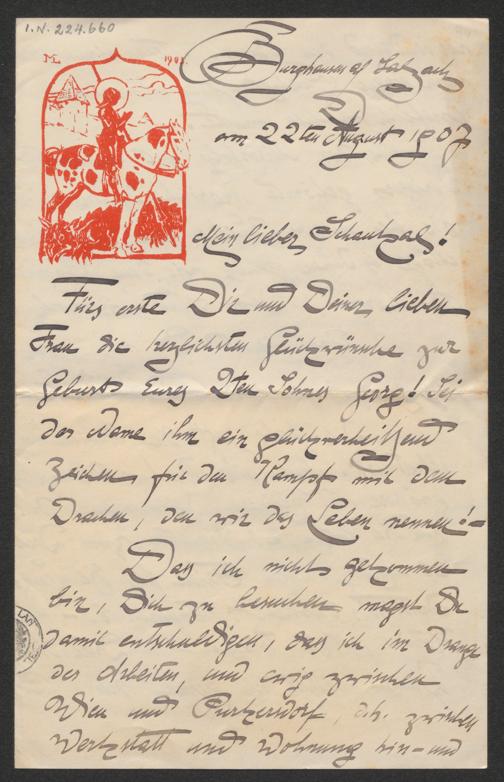 I.N. 224.660
ML 190
Burghausen a/ Salzach
am 22ten August 1907
Mein lieber Schaukal!
Fürs erste Dir und Deiner lieben
Frau die herzlichsten Glückwünsche zur
Geburt Eures 2ten Sohnes Georg! Sei
der Name ihm ein glückverheißend
Zeichen für den Kampf mit dem
Drachen, den wir das Leben nennen! –
Dass ich nicht gekommen
bin, Dich zu besuchen magst Du
damit entschuldigen, dass ich im Drange
der Arbeiten, und ewig zwischen
Wien und Purkersdorf, d.h. zwischen
Werkstatt und Wohnung hin- und